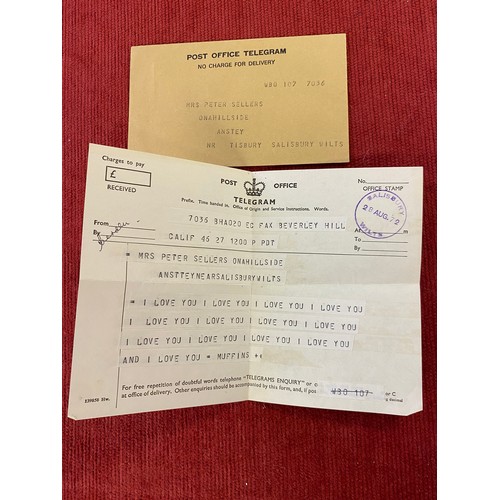 POST OFFICE TELEGRAM
NO CHARGE FOR DELIVERY
WBO 107 7036
MRS PETER SELLERS
ONAHILLSIDE
ANSTEY
NR TISBURY SALISBURY WILTS
Charges to pay
£
RECEIVED
POST OFFICE
TELEGRAM
Prefix. Time handed in. Office of Origin and Service Instructions. Words.
No.
OFFICE STAMP
SALISBURY
28 AUG 72
WILTS
From
By
At
To
By
7036 BHA020 EC FAK BEVERLEY HILL
CALIF 46 27 1200 P PDT
" MRS PETER SELLERS ONAHILLSIDE
ANSTTEYNEARSALISBURYWILTS
" I LOVE YOU I LOVE YOU I LOVE YOU I LOVE YOU
I LOVE YOU I LOVE YOU I LOVE YOU I LOVE YOU
I LOVE YOU I LOVE YOU I LOVE YOU I LOVE YOU
AND I LOVE YOU " MUFFINS "
For free repetition of doubtful words telephone "TELEGRAMS ENQUIRY" or c
at office of delivery. Other enquiries should be accompanied by this form, and, if pos
WBO 107
or C